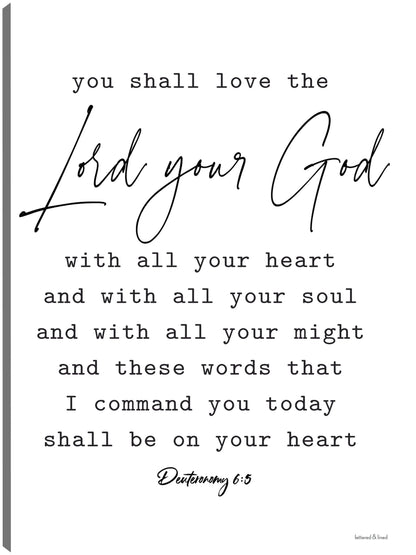 you shall love the
Lord your God
with all your heart
and with all your soul
and with all your might
and these words that
I command you today
shall be on your heart
Deuteronomy 6:5
lettered & lined